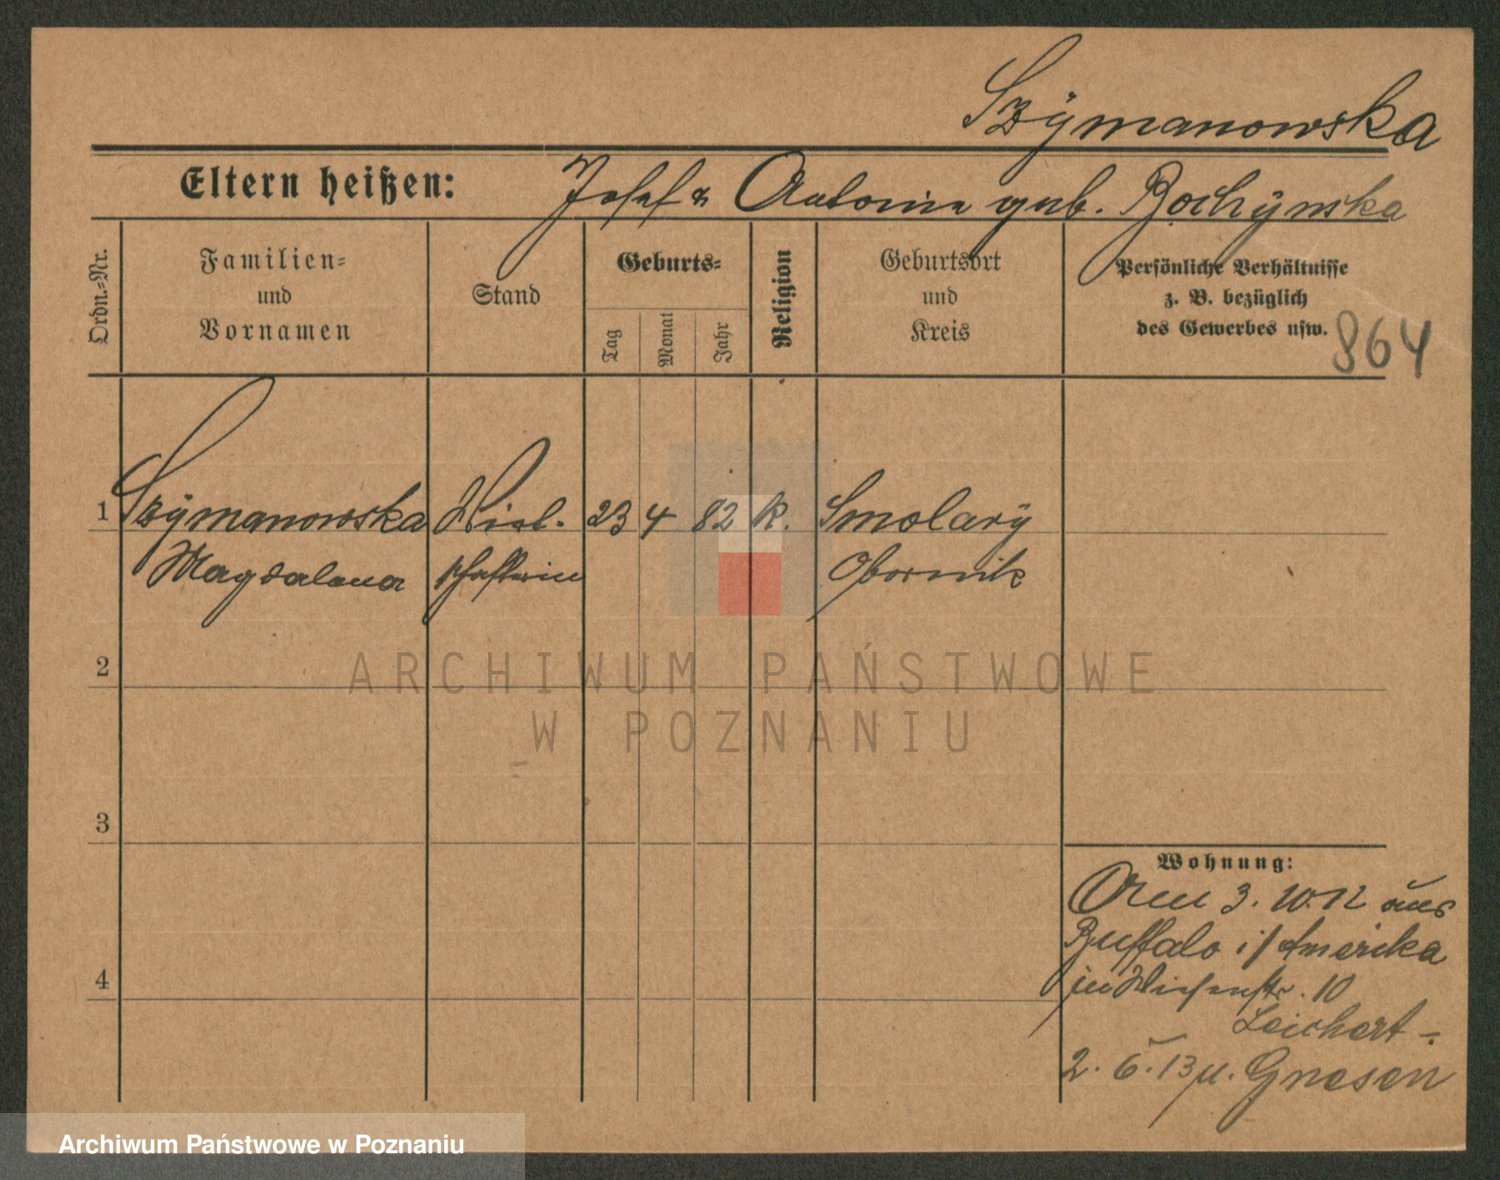 Szÿmanowska
Eltern heißen: Josef & Antonie geb. Bochÿnska
Ordn.-Nr.
Familien- und Vornamen
Stand
Geburts-
Tag
Monat
Jahr
Religion
Geburtsort und Kreis
Persönliche Verhältnisse
z. B. bezüglich
des Gewerbes usw.
864
1 Szÿmanowska Wirt- 23 4 82 k. Smolarÿ
Magdalena schafterin Obornik
2
ARCHIWUM PAŃSTWOWE
W POZNANIU
3
Wohnung:
3. 10. 12 aus
Buffalo i/Amerika
in Wiesenstr. 10
Leichert -
4
2. 6. 13 n. Gnesen
Archiwum Państwowe w Poznaniu